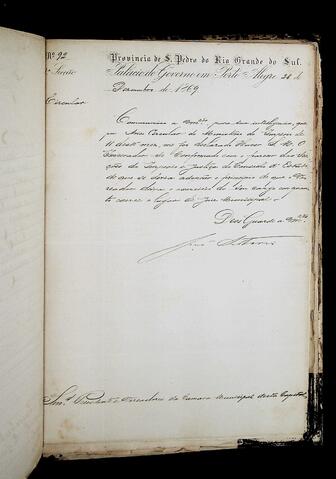 Nº 92
Provincia de S. Pedro do Rio Grande do Sul.
Secção
Palacio do Governo em Porto Alegre 28 de
Dezembro de 1869
Circular
Communico a Vmces para sua intelligencia, que
por Aviso Circular do Ministerio do Imperio de
11 deste mez, me foi declarado Haver S. M. O
Imperador Se Conformado com o parecer das Sec-
ções do Imperio e Justiça do Conselho d'Estado
de que se deva admittir o principio de que o Ve-
reador deixa o exercicio do seu cargo enquan-
to exerce o lugar de Juiz Municipal.
Deos Guarde a Vmces
Snrs. Presidente e Vereadores da Camara Municipal desta Capital